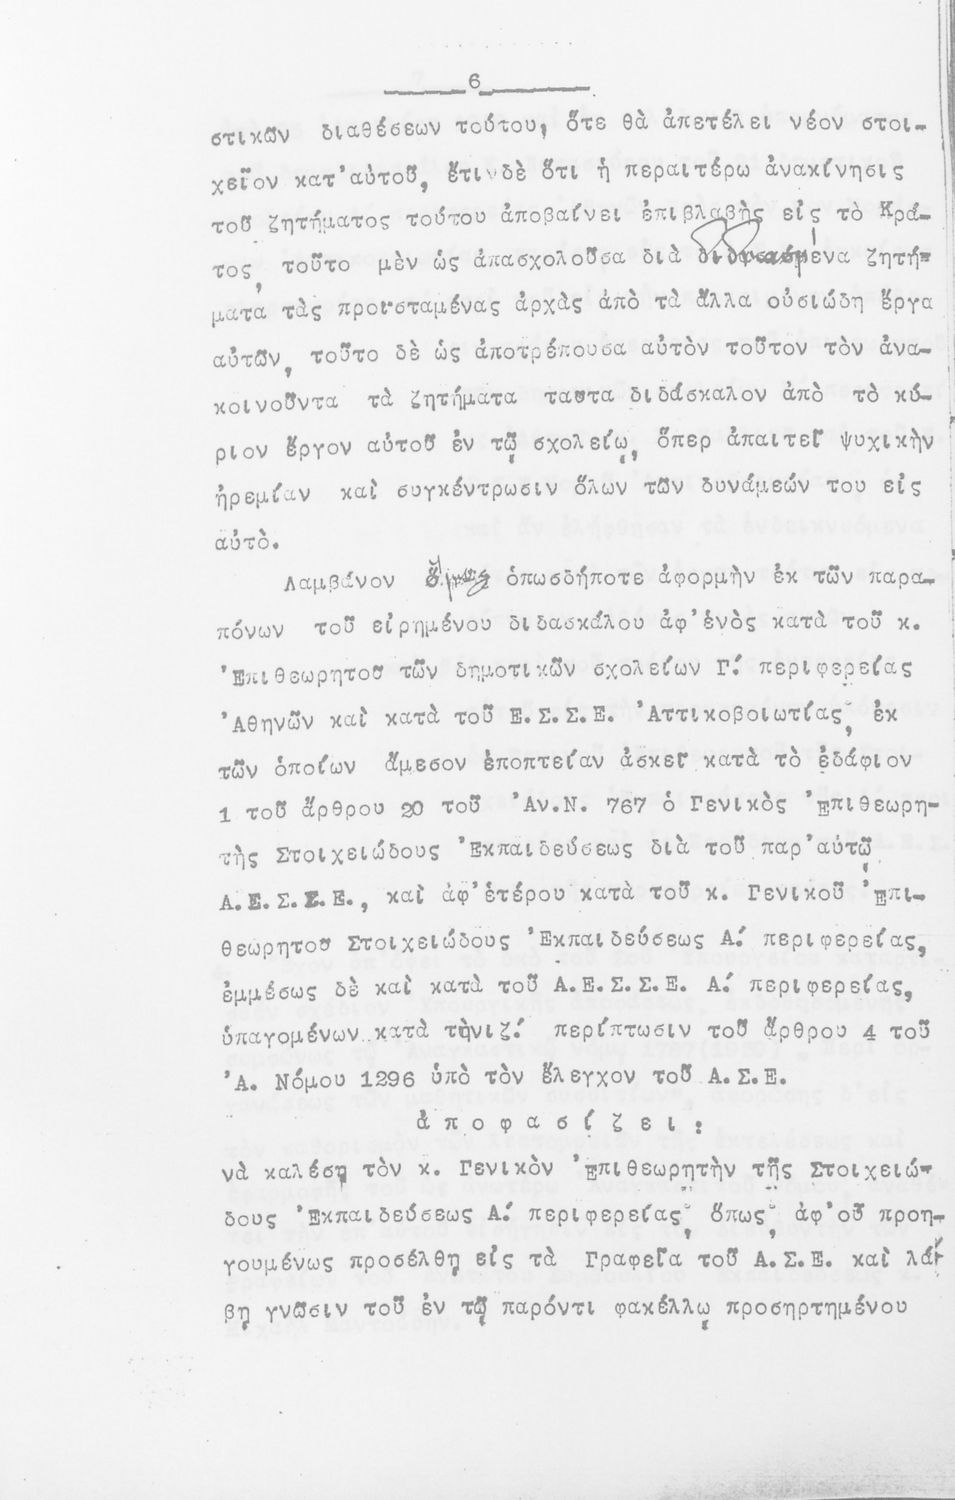 6
στικῶν διαθέσεων τούτου, ὅτε θὰ ἀπετέλει νέον στοι-
χεῖον κατ'αὐτοῦ, ἔτι δὲ ὅτι ἡ περαιτέρω ἀνακίνησις
τοῦ ζητήματος τούτου ἀποβαίνει ἐπιβλαβὴς εἰς τὸ Κρά-
τος, τοῦτο μὲν ὡς ἀπασχολοῦσα διὰ ζητή-
ματα τὰς προισταμένας ἀρχὰς ἀπὸ τὰ ἄλλα οὐσιώδη ἔργα
αὐτῶν, τοῦτο δὲ ὡς ἀποτρέπουσα αὐτὸν τοῦτον τὸν ἀνα-
κοινοῦντα τὰ ζητήματα ταῦτα διδάσκαλον ἀπὸ τὸ κύ-
ριον ἔργον αὐτοῦ ἐν τῷ σχολείῳ, ὅπερ ἀπαιτεῖ ψυχικὴν
ἠρεμίαν καὶ συγκέντρωσιν ὅλων τῶν δυνάμεών του εἰς
αὐτὸ.
Λαμβάνον ὁπωσδήποτε ἀφορμὴν ἐκ τῶν παρα-
πόνων τοῦ εἰρημένου διδασκάλου ἀφ'ἑνὸς κατὰ τοῦ κ.
Ἐπιθεωρητοῦ τῶν δημοτικῶν σχολείων Γ΄. περιφερείας
Ἀθηνῶν καὶ κατὰ τοῦ Ε.Σ.Σ.Ε. Ἀττικοβοιωτίας, ἐκ
τῶν ὁποίων ἄμεσον ἐποπτείαν ἀσκεῖ κατὰ τὸ ἐδάφιον
1 τοῦ ἄρθρου 20 τοῦ Ἀν.Ν. 767 ὁ Γενικὸς Ἐπιθεωρη-
τὴς Στοιχειώδους Ἐκπαιδεύσεως διὰ τοῦ παρ'αὐτῷ
Α.Ε.Σ.Σ.Ε., καὶ ἀφ'ἑτέρου κατὰ τοῦ κ. Γενικοῦ Ἐπι-
θεωρητοῦ Στοιχειώδους Ἐκπαιδεύσεως Α΄. περιφερείας,
ἐμμέσως δὲ καὶ κατὰ τοῦ Α.Ε.Σ.Σ.Ε. Α΄. περιφερείας,
ὑπαγομένων κατὰ τὴνιζ΄. περίπτωσιν τοῦ ἄρθρου 4 τοῦ
Ἀ. Νόμου 1296 ὑπὸ τὸν ἔλεγχον τοῦ Α.Σ.Ε.
ἀποφασίζει:
νὰ καλέσῃ τὸν κ. Γενικὸν Ἐπιθεωρητὴν τῆς Στοιχειώ-
δους Ἐκπαιδεύσεως Α΄. περιφερείας, ὅπως, ἀφ'οῦ προη-
γουμένως προσέλθῃ εἰς τὰ Γραφεῖα τοῦ Α.Σ.Ε. καὶ λά-
βῃ γνῶσιν τοῦ ἐν τῷ παρόντι φακέλλῳ προσηρτημένου